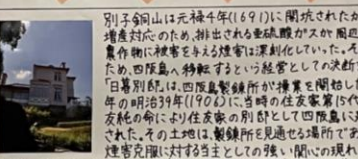 別子銅山は元禄4年(1691)に開坑された
増産対応のため、排出される亜硫酸ガスが周辺
農作物に被害を与える煙害は深刻化していった。そ
ため、四阪島へ移転するという経営としての決断
「日暮別邸」は、四阪島製錬所が操業を開始し
年の明治39年(1906)に、当時の住友家第15代
友純の命により住友家の別邸として四阪島に
された。その土地は、製錬所を見通せる場所であ
煙害克服に対する当主としての強い関心の現れ